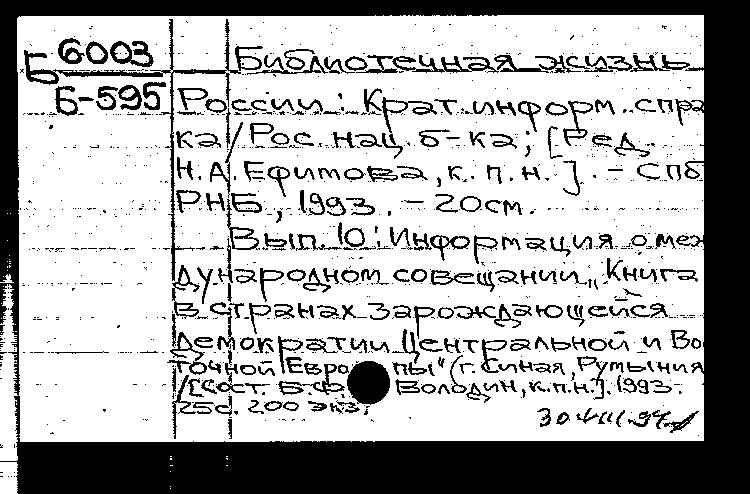 Б 6003
Б-595
Библиотечная жизнь
России: Крат. информ. спра
ка/Рос. нац. б-ка; [Ред.
Н.А. Ефимова, к.п.н.]. - СПб
РНБ, 1993. - 20см.
Вып. 10: Информация о меж
дународном совещании „Книга
в странах зарождающейся
демократии Центральной и Во
точной Европы" (г. Синая, Румыния
/[Сост. Б.Ф. Володин, к.п.н.]. 1993.
25с. 200 экз.
30.VIII.94